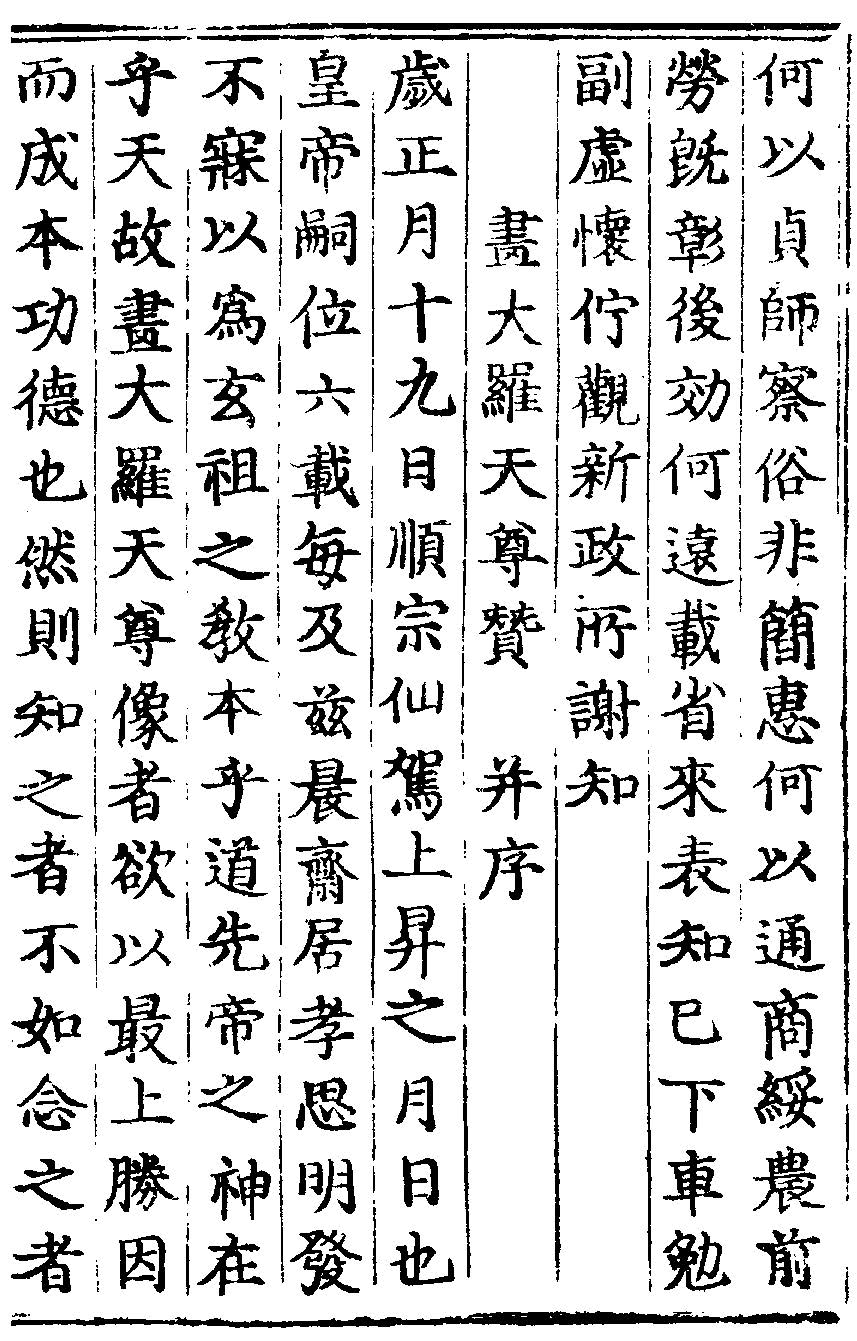 何以貞師察俗非簡惠何以通商綏農前
勞旣彰後効何遠載省來表知已下車勉
副虛懷佇觀新政所謝知
畫大羅天尊贊 并序
歲正月十九日順宗仙駕上昇之月日也
皇帝嗣位六載每及兹晨齋居孝思明發
不寐以爲玄祖之教本乎道先帝之神在
乎天故畫大羅天尊像者欲以最上勝因
而成本功德也然則知之者不如念之者